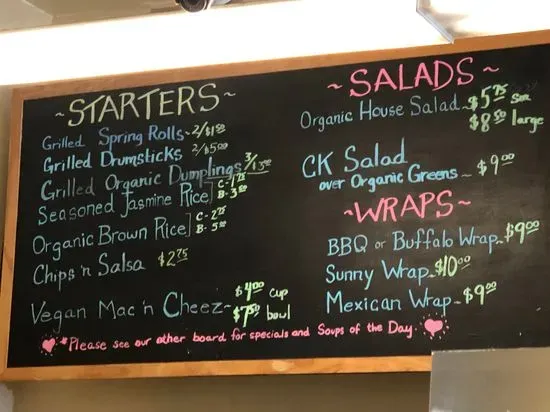 ~STARTERS~
Grilled Spring Rolls~ 2/$1.50
Grilled Drumsticks 2/$5.00
Grilled Organic Dumplings 3/
Seasoned Jasmine Rice] C- 1.75
B- 3.50
Organic Brown Rice] C- 2.75
B- 5.00
Chips 'n Salsa $2.75
Vegan Mac 'n Cheez~ $4.00 cup
$7.50 bowl
~SALADS~
Organic House Salad~ $5.75 sm
$8.50 large
CK Salad
over Organic Greens~ $9.00
~WRAPS~
BBQ or Buffalo Wrap~ $9.00
Sunny Wrap~ $10.00
Mexican Wrap~ $9.00
*Please see our other board for specials and Soups of the Day.